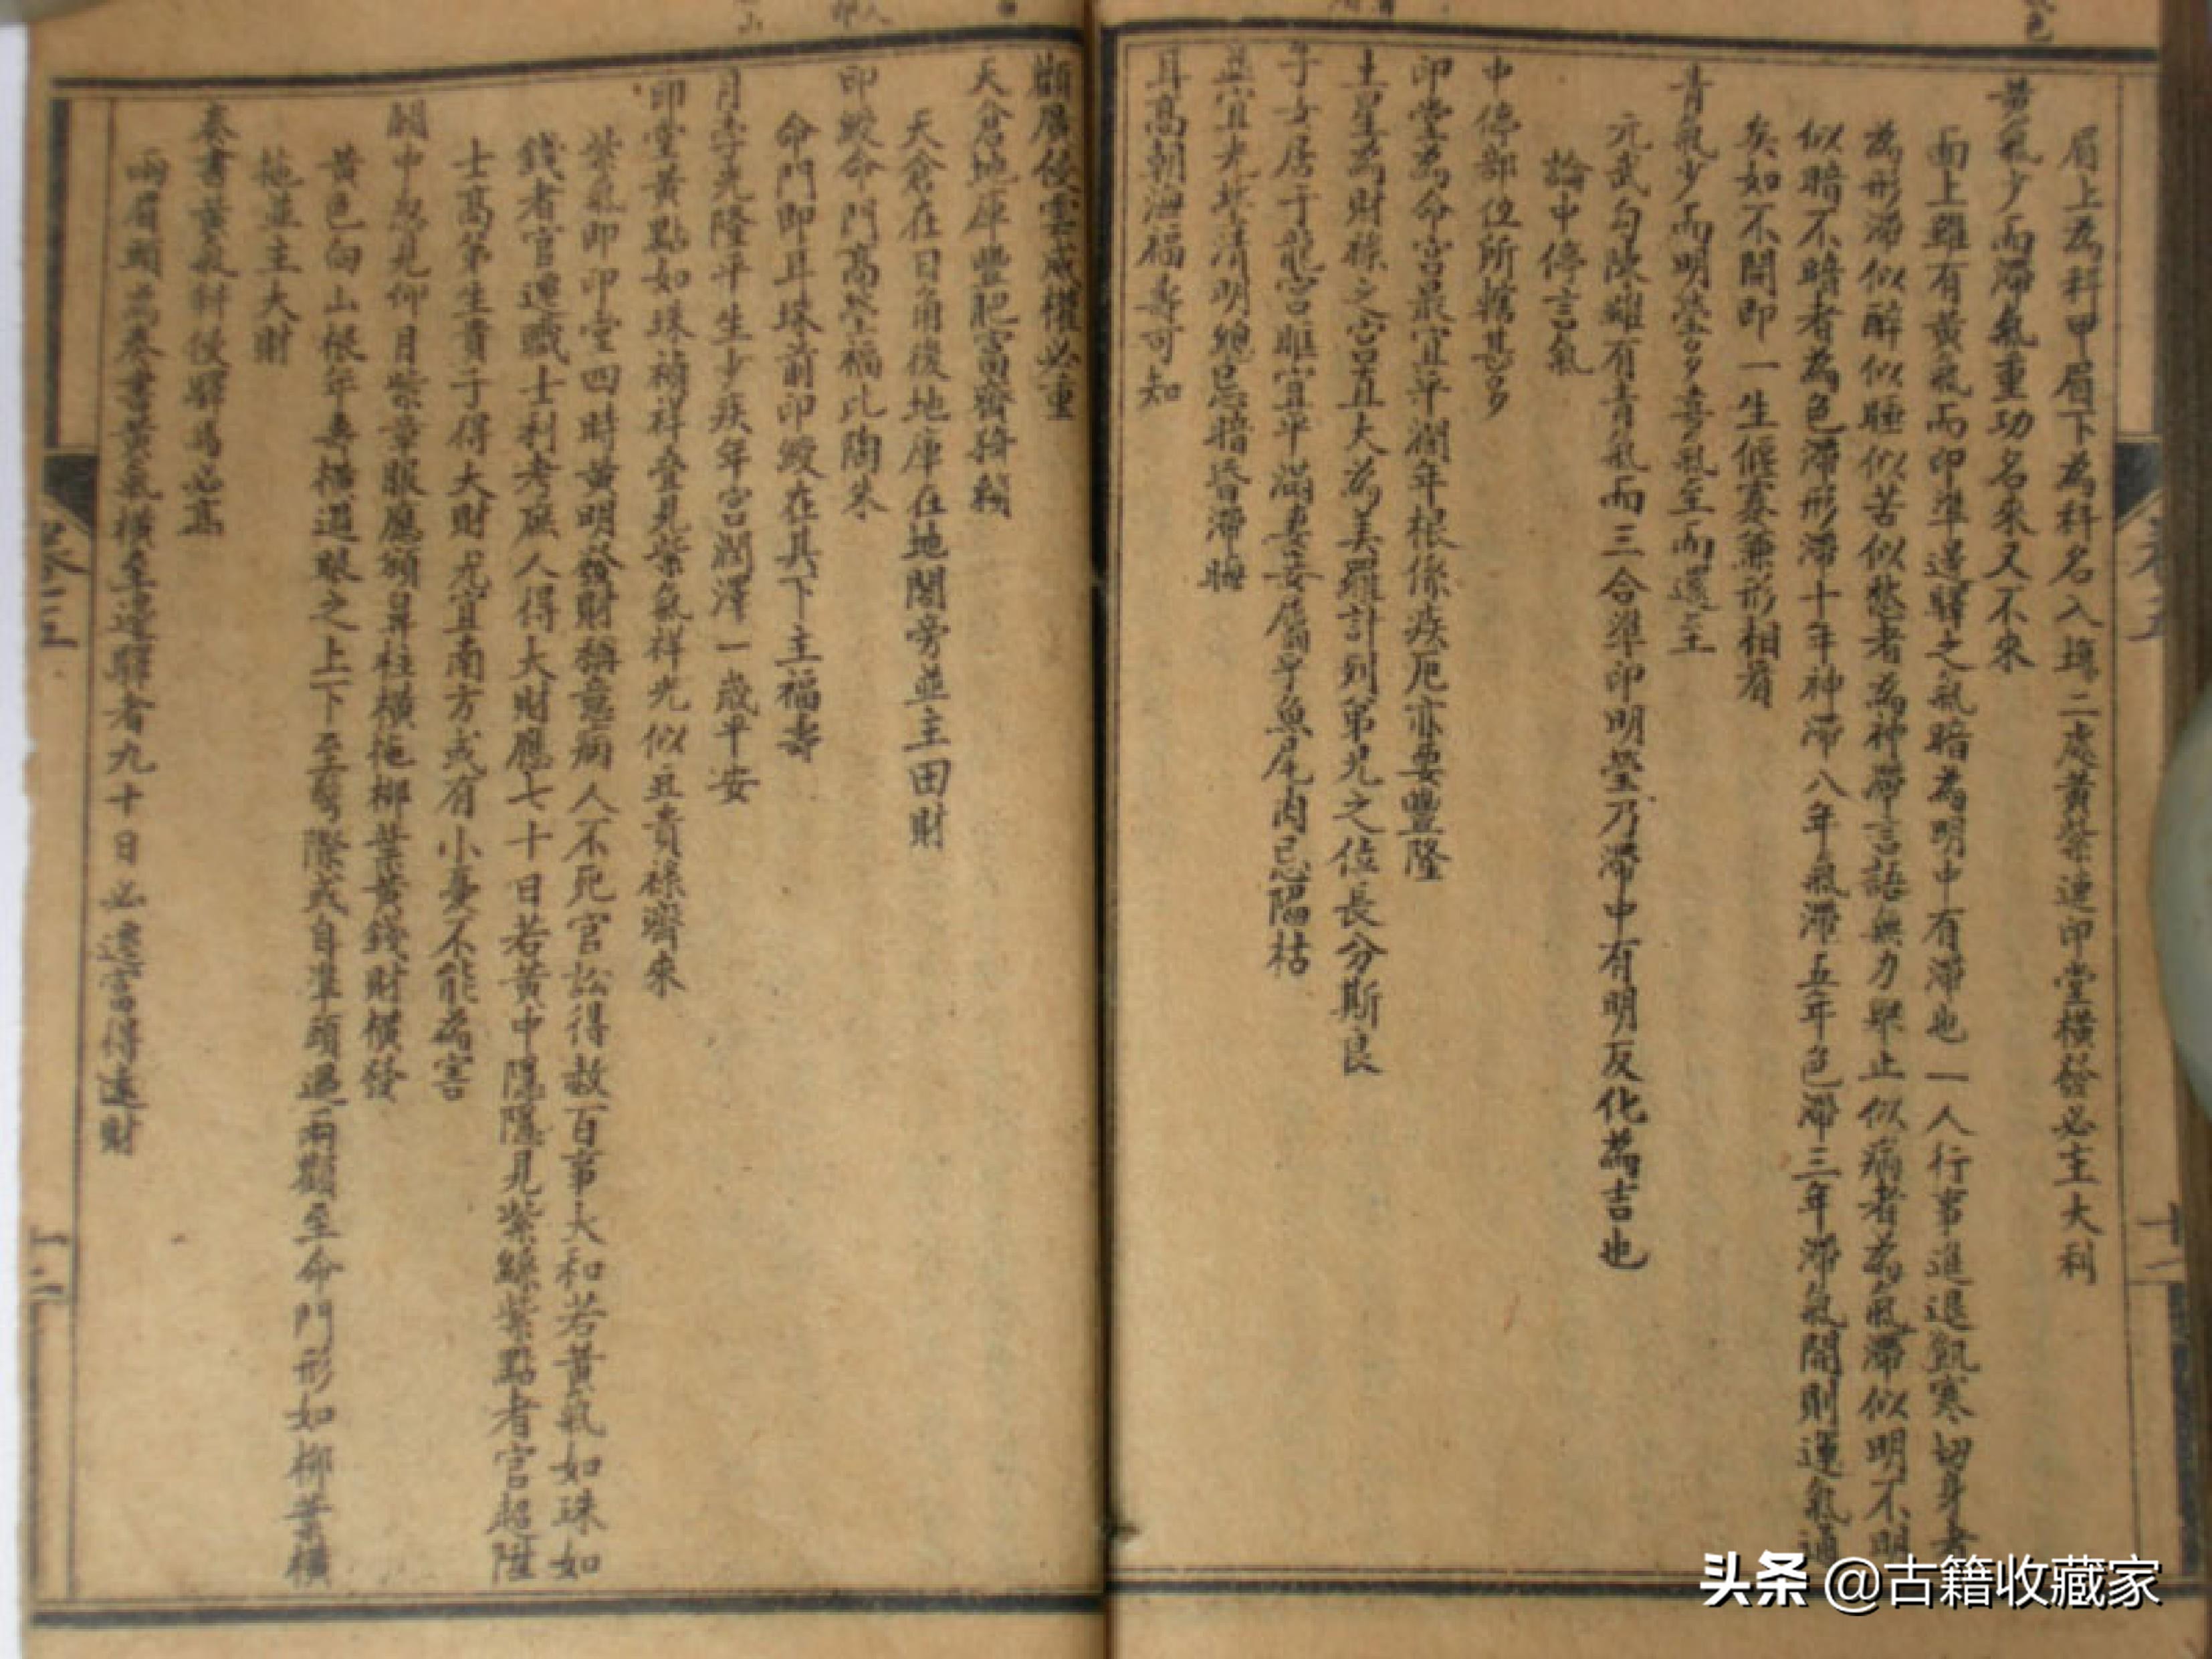 眉上為科甲眉下為科名入塲二處黃紫連印堂橫發必主大利
黃氣少而滯氣重功名來又不來
面上雖有黃氣而印準邊驛之氣暗為明中有滯也一人行事進退寒切身者
為形滯似醉似睡似苦似愁者為神滯言語無力舉止似病者為氣滯似明不明
似暗不暗者為色滯形滯十年神滯八年氣滯五年色滯三年滯氣開則運氣通
矣如不開即一生偃蹇兼形相看
青氣少而明瑩多喜氣至而還至
元武勾陳雖有青氣而三合準印明瑩乃滯中有明反化為吉也
論中停言氣
中停部位所轄甚多
印堂為命宮最宜平濶年根係疾厄亦要豐隆
土星為財祿之宮宜大為美羅計列弟兄之位長分斯良
子女居于龍宮雎宜平滿妻妾屬乎魚尾肉忌陷枯
並宜光瑩清明總忌暗昏滯晦
耳高朝海福壽可知
顴廣侵雲威權必重
天倉地庫豐肥富齊猗
天倉在日角後地庫在地閣旁並主田財
印殺命門高瑩福比陶朱
命門即耳珠前印殺在其下主福壽
月孛光隆平生少疾年宮潤澤一歲平安
印堂黃點如珠禎祥叠見紫氣祥光似豆貴祿齊來
紫氣即印堂四時黃明發財稱意病人不死官訟得赦百事大和若黃氣如珠如
錢者官遷職士利考庶人得大財應七十日若黃中隱隱見紫絲紫點者官超陞
士高第生貴子得大財尤宜南方或有小憂不能為害
顴中忽見仰月紫章服應頒昇柱橫拖柳葉黃錢財橫發
黃色向山根年壽橫過眼之上下至鬂際或自準頭過兩顴至命門形如柳葉橫
拖並主大財
奏書黃氣科侵驛馬必高
兩眉頭為奏書黃氣橫至邊驛者九十日必遠官得遠財
卷三
十二
头条 @古籍收藏家